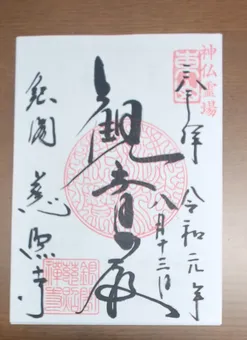 神仏霊場
奉拝
令和元年
八月十三日
観音殿
銀閣 慈照寺